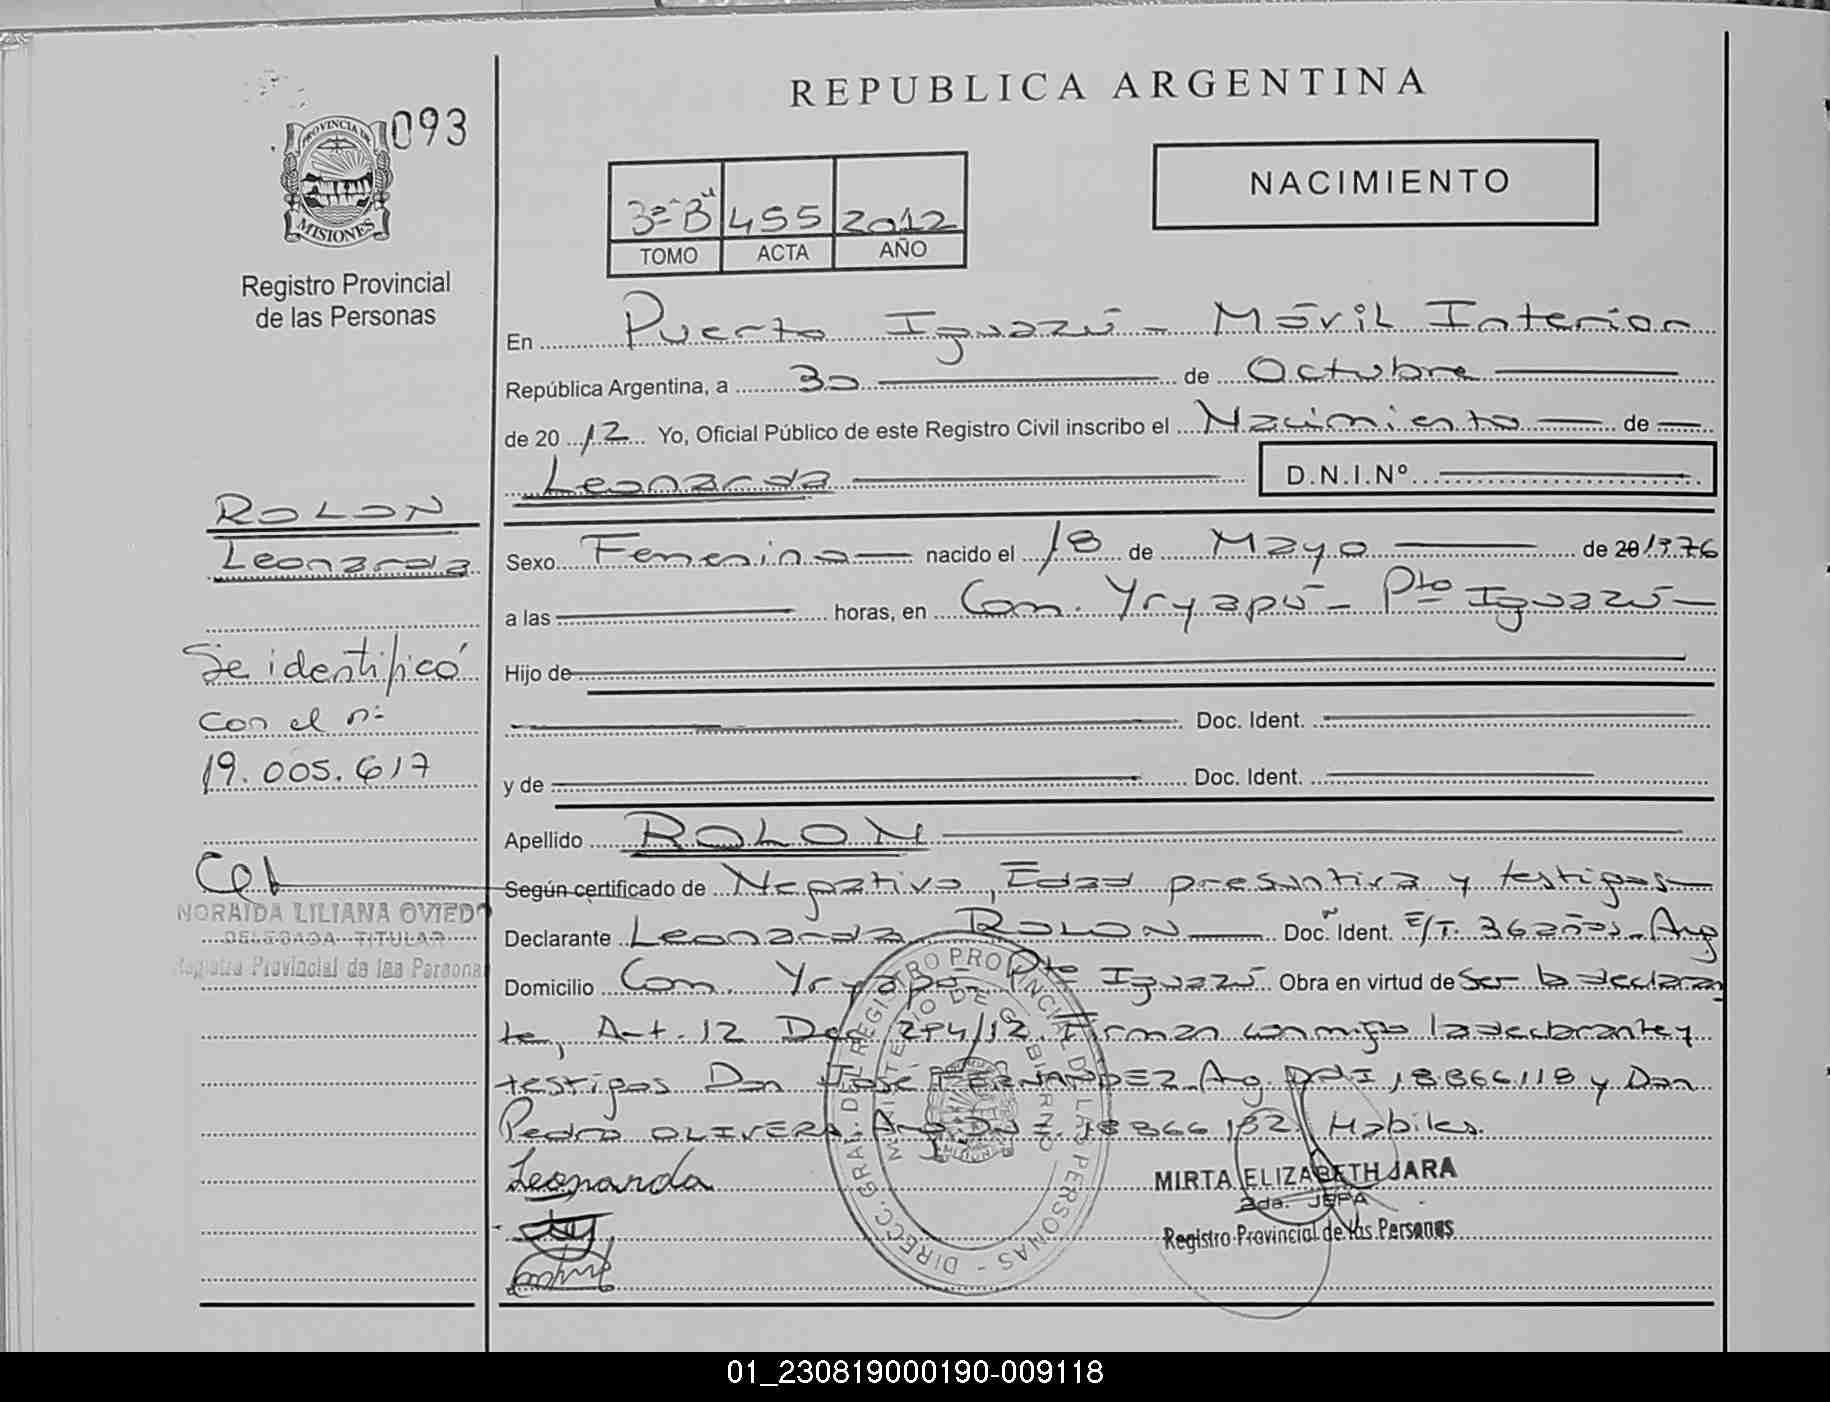 REPUBLICA ARGENTINA
093
PROVINCIA DE
MISIONES
Registro Provincial
de las Personas
NACIMIENTO
3º "B" 455 2012
TOMO ACTA AÑO
En Puerto Iguazú - Móvil Interior
República Argentina, a 30 de Octubre
de 2012 Yo, Oficial Público de este Registro Civil inscribo el Nacimiento de
Leonarda D.N.I.Nº
ROLON
Leonarda
Se identificó
con el nº
19.005.617
NORAIDA LILIANA OVIEDO
DELEGADA TITULAR
Registro Provincial de las Personas
Sexo Femenino nacido el 18 de Mayo de 1976
a las horas, en Com. Yryapú - Pto Iguazú
Hijo de
Doc. Ident.
y de Doc. Ident.
Apellido ROLON
Según certificado de Negativo, Edad presuntiva y testigos
Declarante Leonarda ROLON Doc. Ident. E/T. 36 años - Arg
Domicilio Com. Yryapú - Pto Iguazú Obra en virtud de Ser la declaran
te, Art. 12 Dec 274/12. Firman conmigo la declarante y
testigos Don José FERNANDEZ - Arg. DNI 18.866.118 y Don
Pedro OLIVERA Arg DNI. 18.866.132. Hábiles.
Leonarda
MIRTA ELIZABETH JARA
2da. JEFA
Registro Provincial de las Personas
DIRECC. GRAL. DEL REGISTRO PROVINCIAL DE LAS PERSONAS
MINISTERIO DE GOBIERNO
MISIONES
01_230819000190-009118